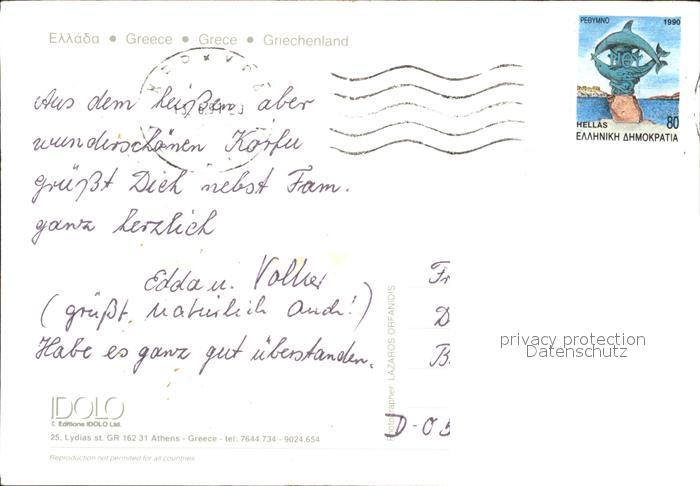 Ελλάδα • Greece • Grece • Griechenland
ΡΕΘΥΜΝΟ 1990
HELLAS 80
ΕΛΛΗΝΙΚΗ ΔΗΜΟΚΡΑΤΙΑ
Aus dem heißen aber
wunderschönen Korfu
grüßt Dich nebst Fam.
ganz herzlich
Edda u. Volker
(grüßt natürlich auch!)
Habe es ganz gut überstanden.
Fr
D
B
D-OB
privacy protection
Datenschutz
Photographer LAZAROS ORFANIDIS
IDOLO
© Editions IDOLO Ltd.
25, Lydias st. GR 162 31 Athens - Greece - tel: 7644.734 - 9024.654
Reproduction not permited for all countries